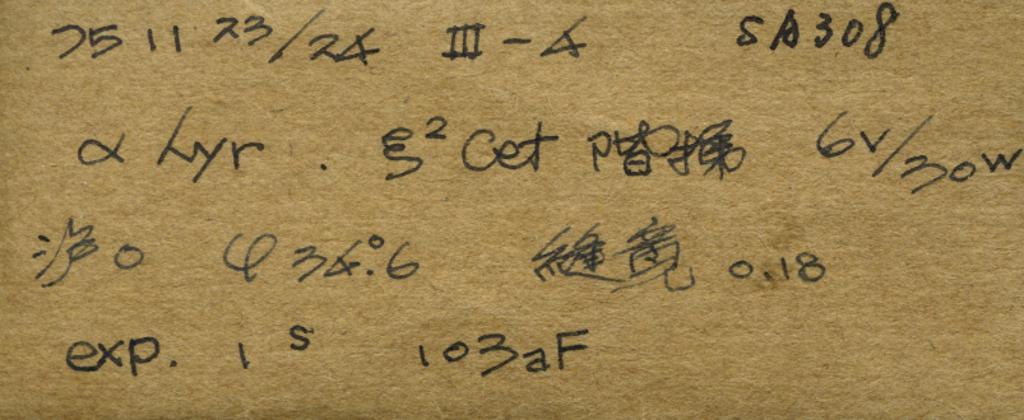 75 11 23/24 III-4 SA308
α Lyr . ξ² Cet 階梯 6V/30W
沪0 φ 34°.6 縫寬 0.18
exp. 1ˢ 103aF